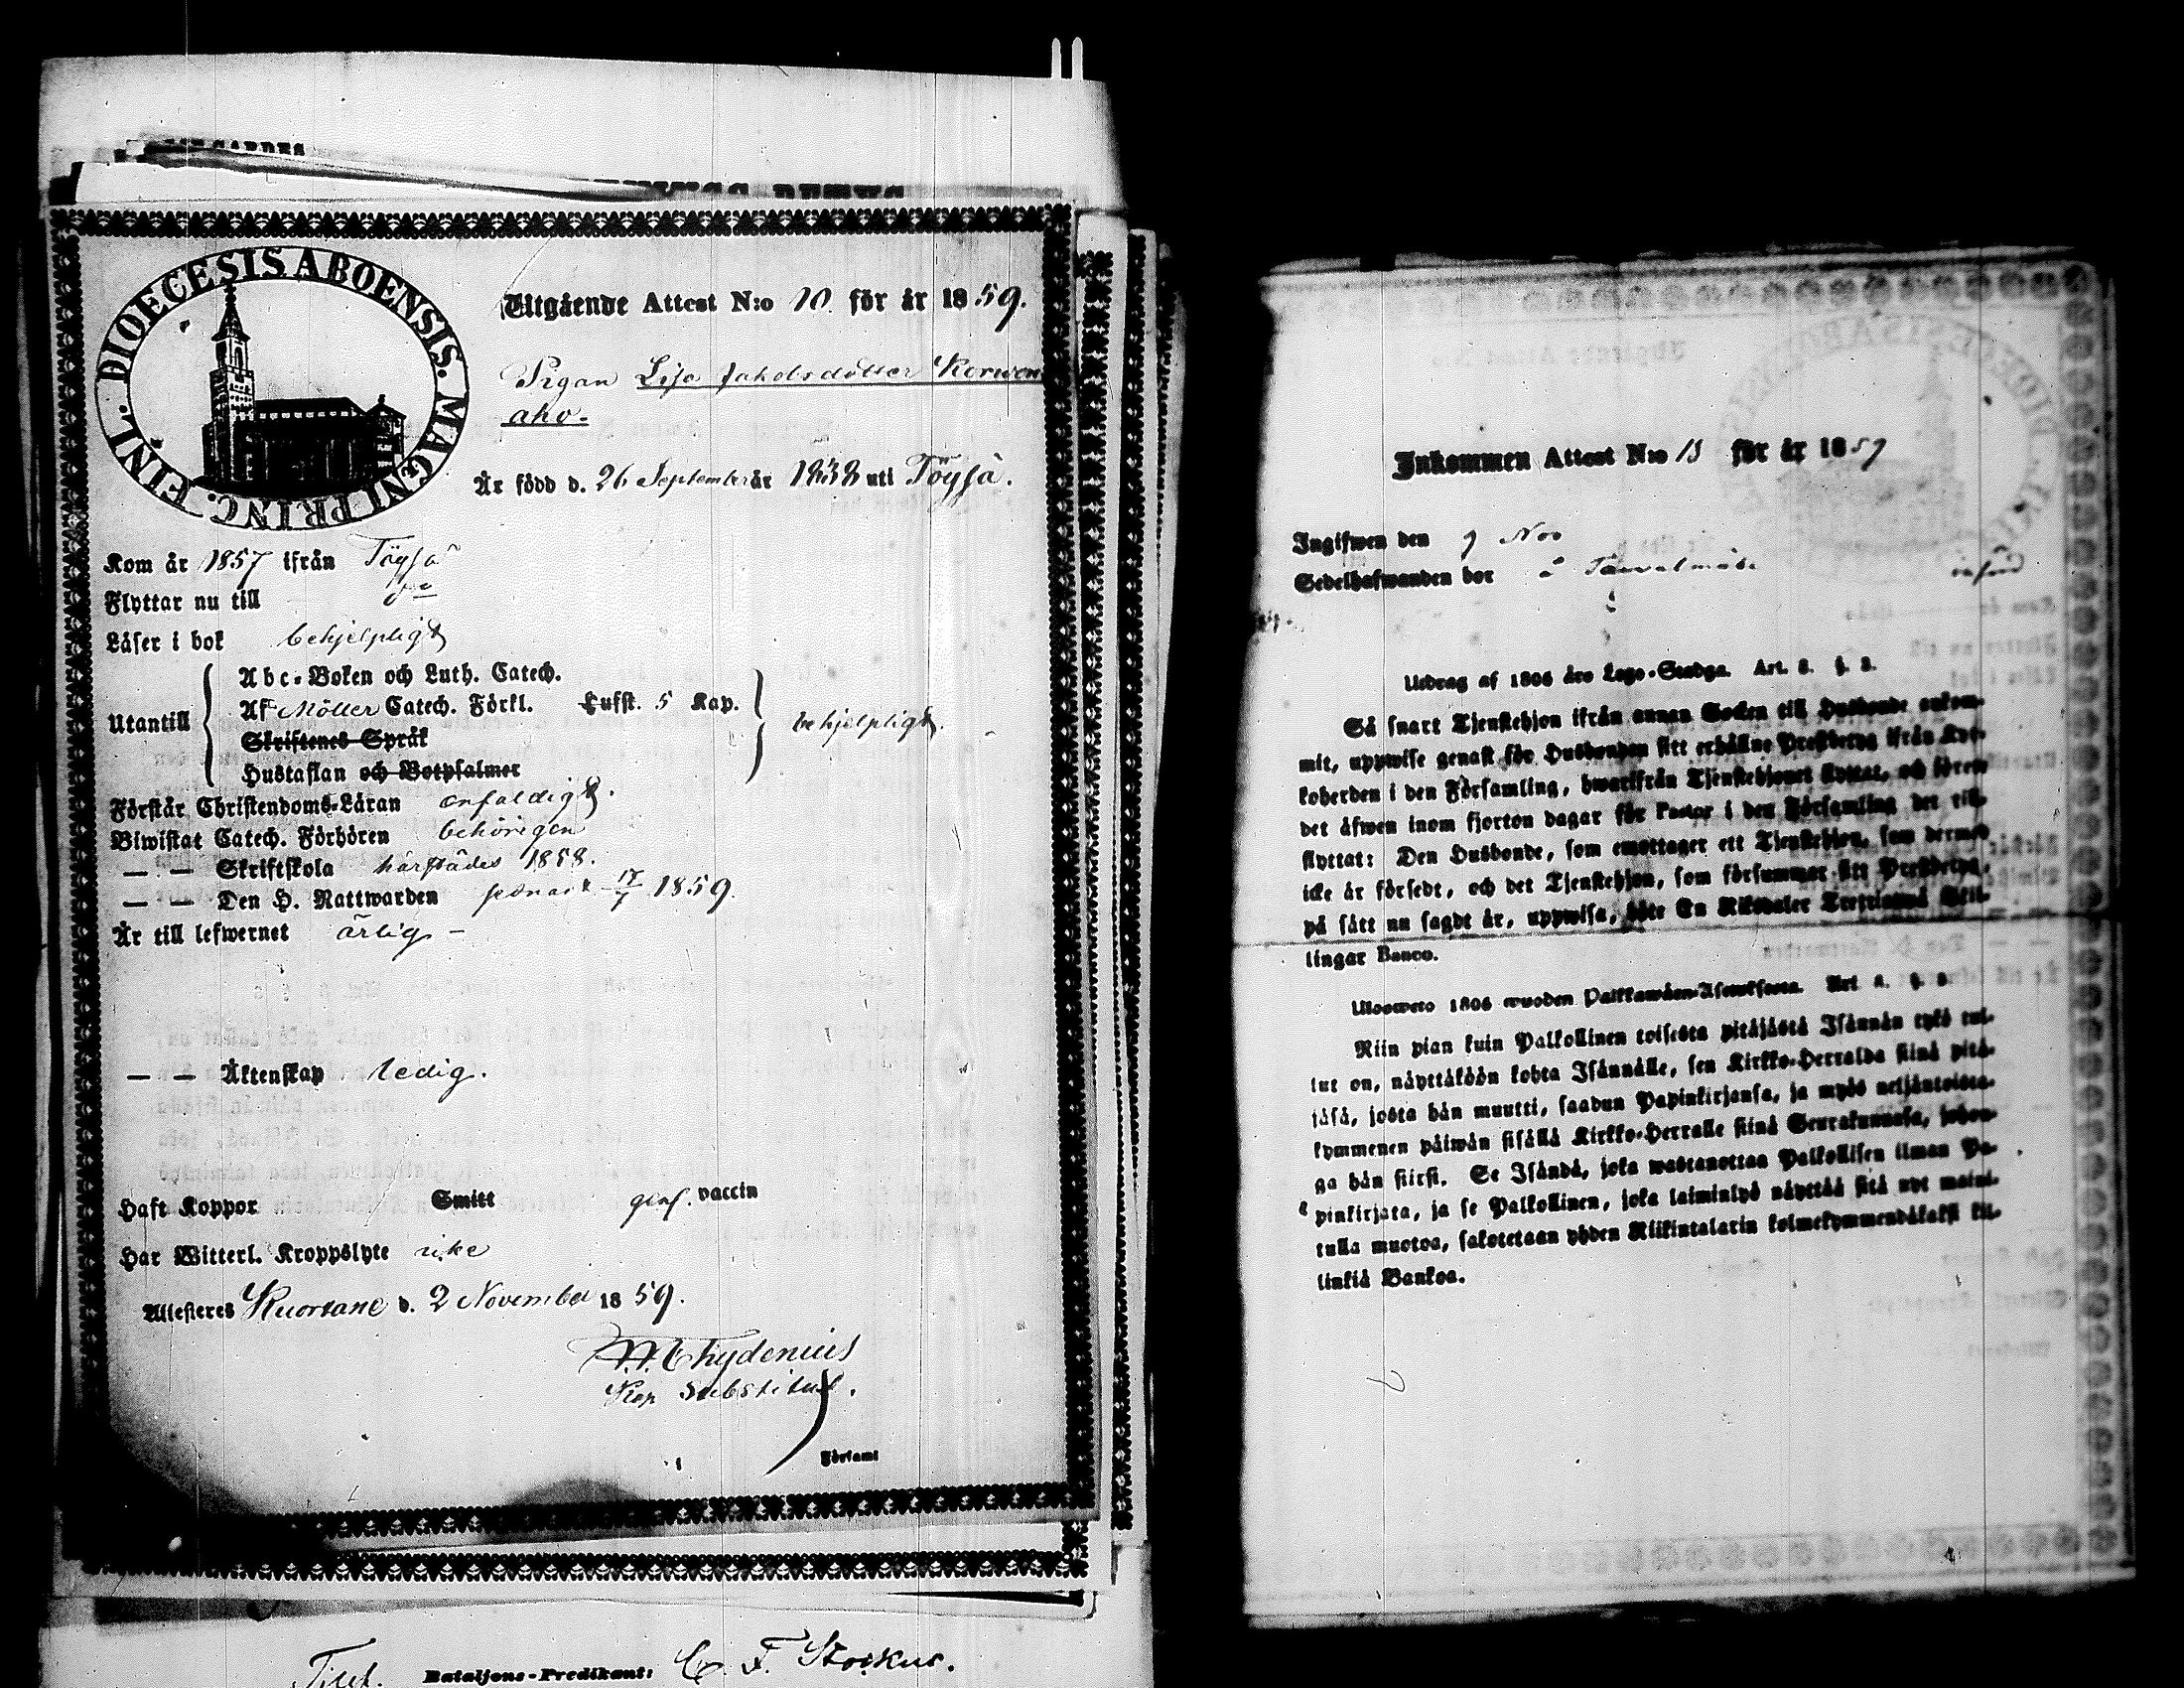 DIOECESIS ABOENSIS. MAGNI PRINC. FINL.
Utgående Attest N:o 10. för år 1859.
Pigan Lisa Jakobsdotter Kerwen
aho.
Är född d. 26 September år 1838 uti Töysä.
Kom år 1857 ifrån Töysä
Flyttar nu till do
Läser i bok behjelpligt
Utantill
Abc-Boken och Luth. Catech.
Af Möller Catech. Förkl. Lufft. 5 Kap.
Skriftenes Språk
Hustaflan och Botpsalmer
behjelpligt.
Förstår Christendoms-Läran enfaldigt.
Biwistat Catech. Förhören behörigen
— — Skriftskola härstädes 1858.
— — Den H. Nattwarden senast 17/7 1859.
Är till lefwernet ärlig –
— — Äktenskap ledig.
Haft Koppor Smitt genf. vaccin
Har Witterl. Kroppslyte icke
Attesteras Kuortane d. 2 November 1859.
Chydenius
Kop Substitut.
Församl
Titul. Bataljons-Predikant: C. F. Storkus.
Inkommen Attest N:o 13 för år 1859
Ingifwen den 9 Nov
Sedelhafwanden bor i
Utdrag af 1805 års Lego-Stadga. Art. 8. §. 3.
Så snart Tjenstehjon ifrån annan Socken till Husbonde ankom-
mit, uppwise genast för Husbonden sitt erhållne Prestbetyg ifrån Kyr-
koherden i den Församling, hwarifrån Tjenstehjonet flyttat, och förete
det äfwen inom fjorton dagar för Pastor i den Församling det till-
flyttat: Den Husbonde, som emottager ett Tjenstehjon, som dermed
icke är försedt, och det Tjenstehjon, som försummar sitt Prestbetyg,
på sätt nu sagdt är, uppwisa, böte En Riksdaler Trettiotwå Skil-
lingar Banco.
Ulosweto 1805 wuoden Palkkawäen-Asetuksesta. Art. 8. §. 3.
Niin pian kuin Palkollinen toisesta pitäjästä Isännän tykö tul-
lut on, näyttäköön kohta Isännälle, sen Kirkko-Herralda siinä pitä-
jäsä, josta hän muutti, saadun Papinkirjansa, ja myös neljäntoista-
kymmenen päiwän sisällä Kirkko-Herralle siinä Seurakunnasa, johon-
ga hän siirsi. Se Isändä, joka wastanottaa Palkollisen ilman Pa-
pinkirjata, ja se Palkollinen, joka laiminlyö näyttää sitä nyt maini-
tulla muotoa, sakotetaan yhden Riikintalarin kolmekymmendäkaksi kil-
linkiä Bankoa.